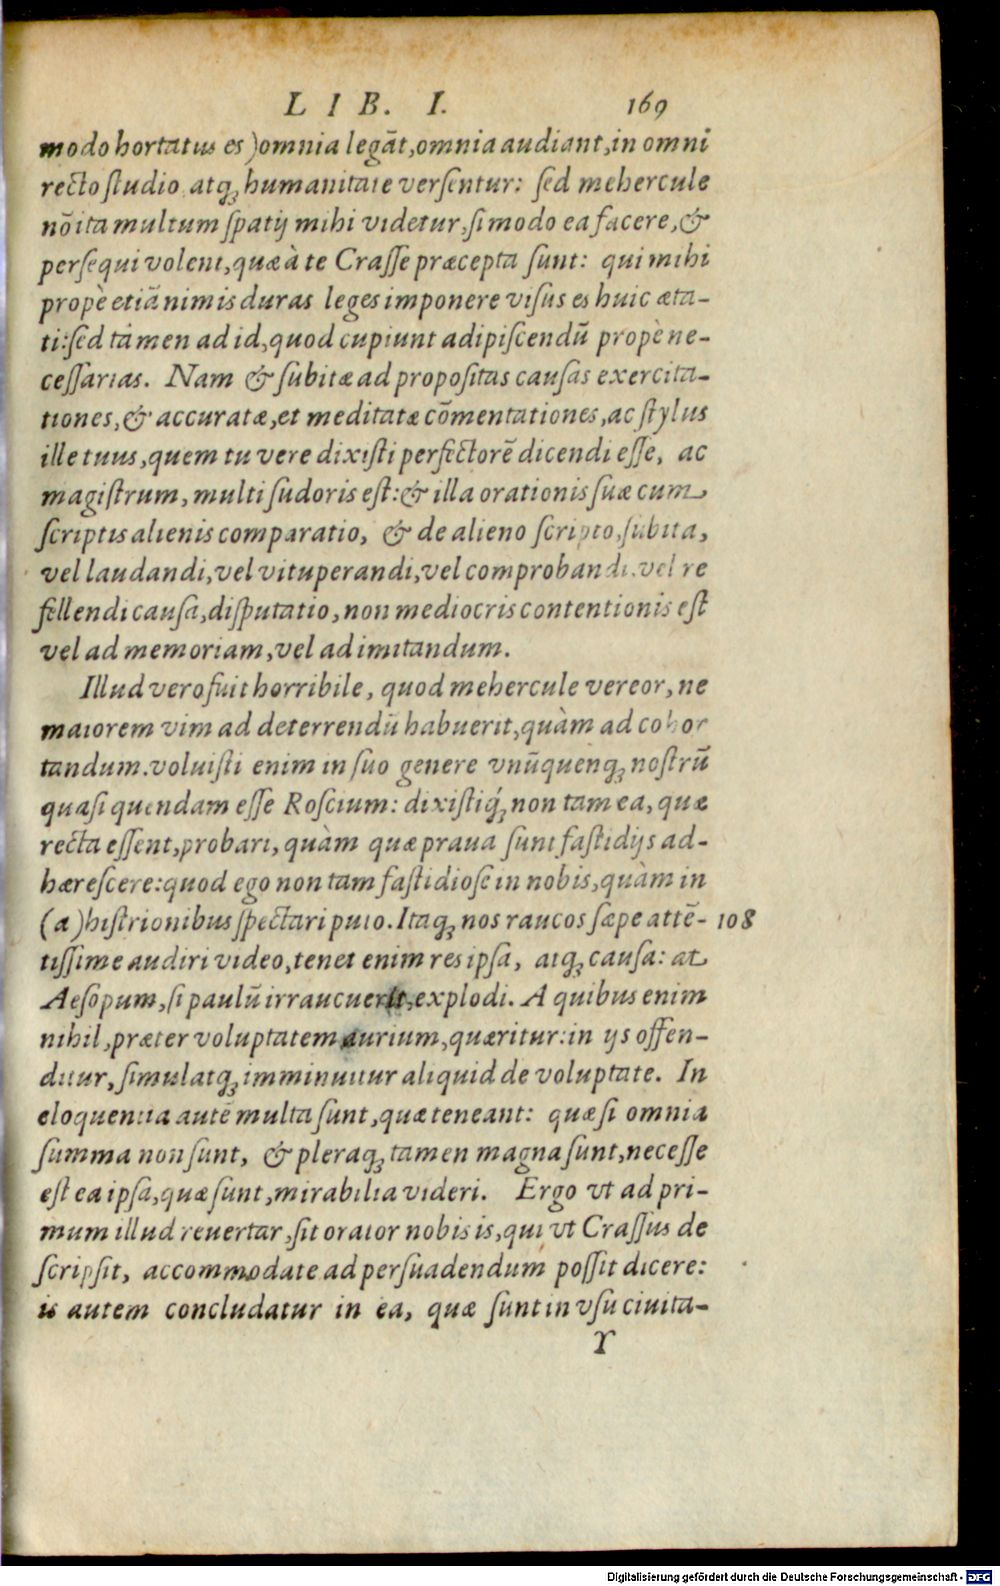 LIB. I. 169
modo hortatus es) omnia legāt, omnia audiant, in omni
recto studio atq; humanitate versentur: sed mehercule
nō ita multum spatij mihi videtur, si modo ea facere, &
persequi volent, quæ à te Crasse præcepta sunt: qui mihi
propè etiā nimis duras leges imponere visus es huic æta-
ti: sed tamen ad id, quod cupiunt adipiscendū propè ne-
cessarias. Nam & subitæ ad propositas causas exercita-
tiones, & accuratæ, et meditatæ cōmentationes, ac stylus
ille tuus, quem tu vere dixisti perfectorē dicendi esse, ac
magistrum, multi sudoris est: & illa orationis suæ cum
scriptis alienis comparatio, & de alieno scripto, subita,
vel laudandi, vel vituperandi, vel comprobandi, vel re
fellendi causa, disputatio, non mediocris contentionis est
vel ad memoriam, vel ad imitandum.
Illud vero fuit horribile, quod mehercule vereor, ne
maiorem vim ad deterrendū habuerit, quàm ad cohor
tandum. voluisti enim in suo genere vnūquenq; nostrū
quasi quendam esse Roscium: dixistiq́; non tam ea, quæ
recta essent, probari, quàm quæ praua sunt fastidijs ad-
hærescere: quod ego non tam fastidiose in nobis, quàm in
(a) histrionibus spectari puto. Itaq; nos raucos sæpe attē- 108
tissime audiri video, tenet enim res ipsa, atq; causa: at
Aesopum, si paulū irraucuerit, explodi. A quibus enim
nihil, præter voluptatem aurium, quæritur: in ijs offen-
ditur, simulatq; imminuitur aliquid de voluptate. In
eloquentia autē multa sunt, quæ teneant: quæ si omnia
summa non sunt, & pleraq; tamen magna sunt, necesse
est ea ipsa, quæ sunt, mirabilia videri. Ergo vt ad pri-
mum illud reuertar, sit orator nobis is, qui vt Crassus de
scripsit, accommodate ad persuadendum possit dicere:
is autem concludatur in ea, quæ sunt in vsu ciuita-
Y
Digitalisierung gefördert durch die Deutsche Forschungsgemeinschaft - DFG